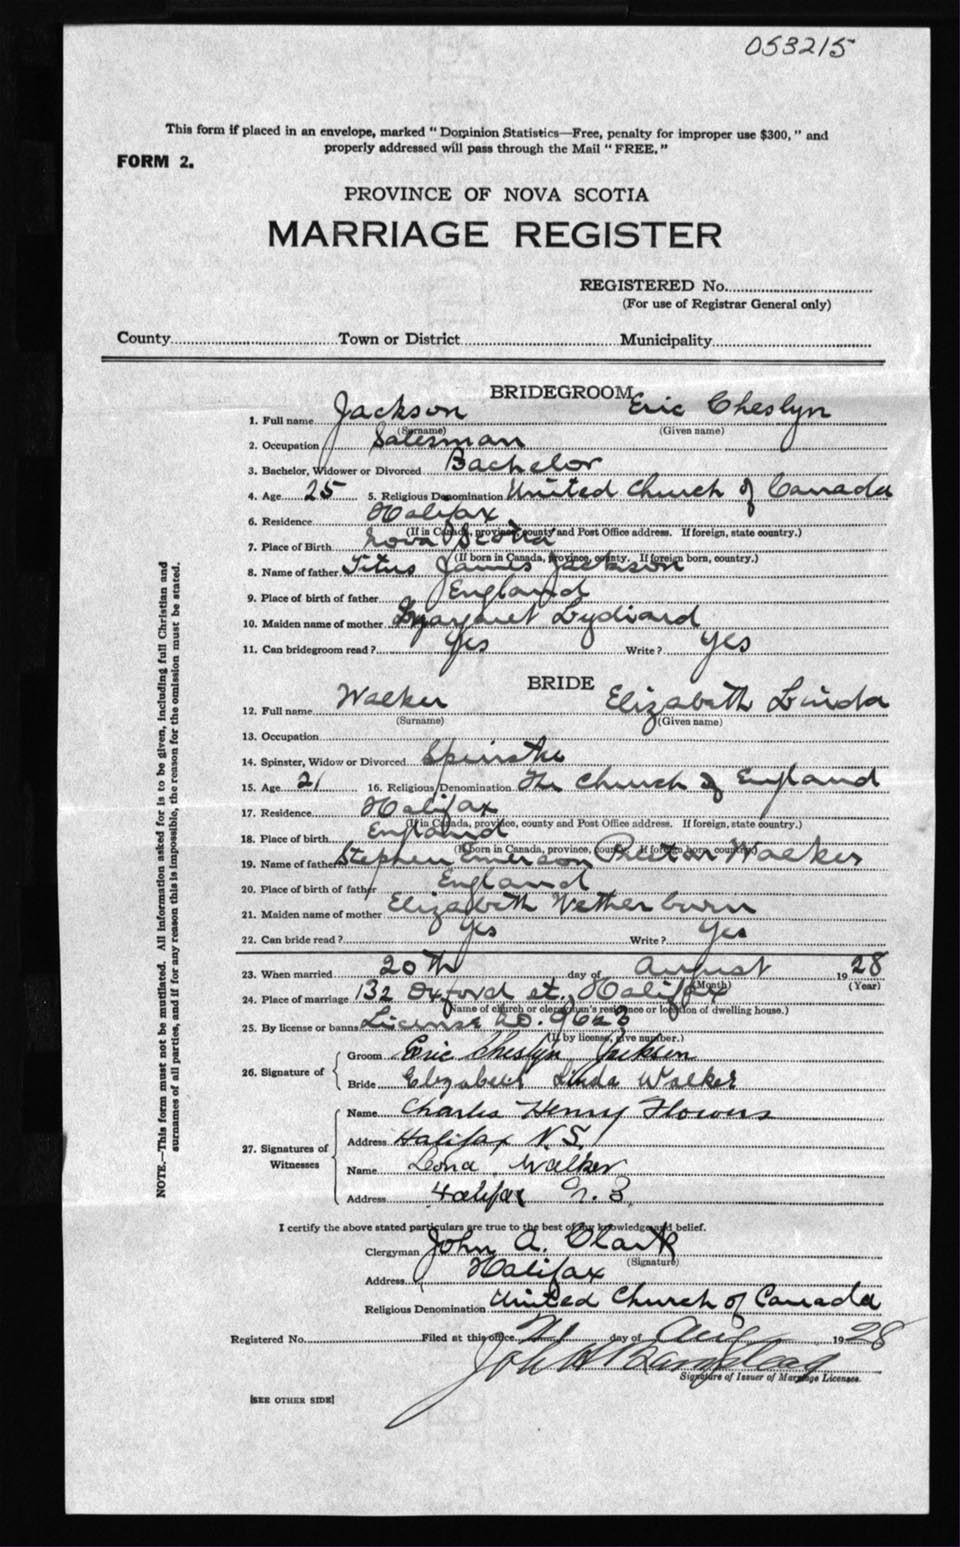 053215
This form if placed in an envelope, marked "Dominion Statistics—Free, penalty for improper use $300," and
properly addressed will pass through the Mail "FREE."
FORM 2.
PROVINCE OF NOVA SCOTIA
MARRIAGE REGISTER
REGISTERED No.
(For use of Registrar General only)
County Town or District Municipality
BRIDEGROOM
1. Full name Jackson Eric Cheslyn
(Surname) (Given name)
2. Occupation Salesman
3. Bachelor, Widower or Divorced Bachelor
4. Age 25 5. Religious Denomination United Church of Canada
6. Residence Halifax
(If in Canada, province, county and Post Office address. If foreign, state country.)
7. Place of Birth Nova Scotia
(If born in Canada, province, county. If foreign born, country.)
8. Name of father Titus James Jackson
9. Place of birth of father England
10. Maiden name of mother Margaret Lydiard
11. Can bridegroom read? Yes Write? Yes
BRIDE
12. Full name Walker Elizabeth Linda
(Surname) (Given name)
13. Occupation
14. Spinster, Widow or Divorced Spinster
15. Age 21 16. Religious Denomination The Church of England
17. Residence Halifax
(If in Canada, province, county and Post Office address. If foreign, state country.)
18. Place of birth England
(If born in Canada, province, county. If foreign born, country.)
19. Name of father Stephen Emerson Walker
20. Place of birth of father England
21. Maiden name of mother Elizabeth Wetherburn
22. Can bride read? Yes Write? Yes
23. When married 20th day of August 1928
(Month) (Year)
24. Place of marriage 132 Oxford st. Halifax
(Name of church or clergyman's residence or location of dwelling house.)
25. By license or banns License no. 9623
(If by license, give number.)
26. Signature of Groom Eric Cheslyn Jackson
Bride Elizabeth Linda Walker
27. Signatures of Witnesses Name Charles Henry Flowers
Address Halifax N.S.
Name Leona Walker
Address Halifax N.S.
I certify the above stated particulars are true to the best of my knowledge and belief.
Clergyman John A. Clark
(Signature)
Address Halifax
Religious Denomination United Church of Canada
Registered No. Filed at this office 21 day of Aug 1928
Signature of Issuer of Marriage Licenses.
[SEE OTHER SIDE]
NOTE.—This form must not be mutilated. All information asked for is to be given, including full Christian and
surnames of all parties, and if for any reason this is impossible, the reason for the omission must be stated.